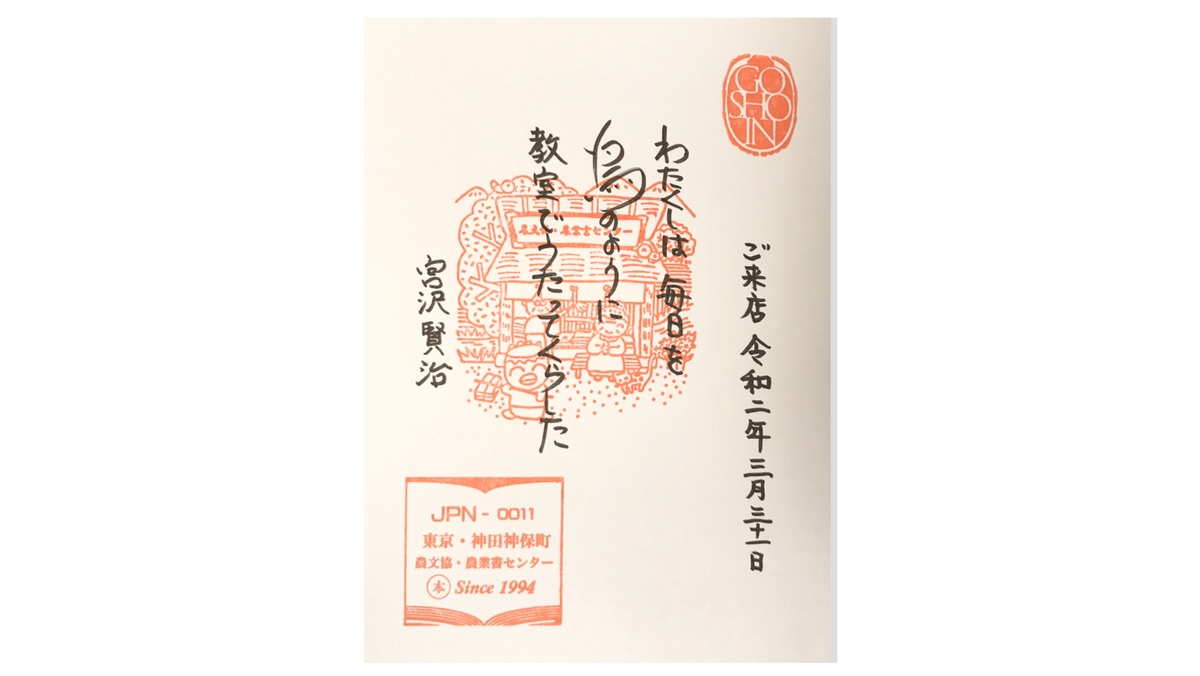 GO
SHO
IN
ご来店 令和二年三月三十一日
わたくしは 毎日を
鳥のように
教室でうたってくらした
宮沢賢治
農文協・農業書センター
JPN - 0011
東京・神田神保町
農文協・農業書センター
本 Since 1994